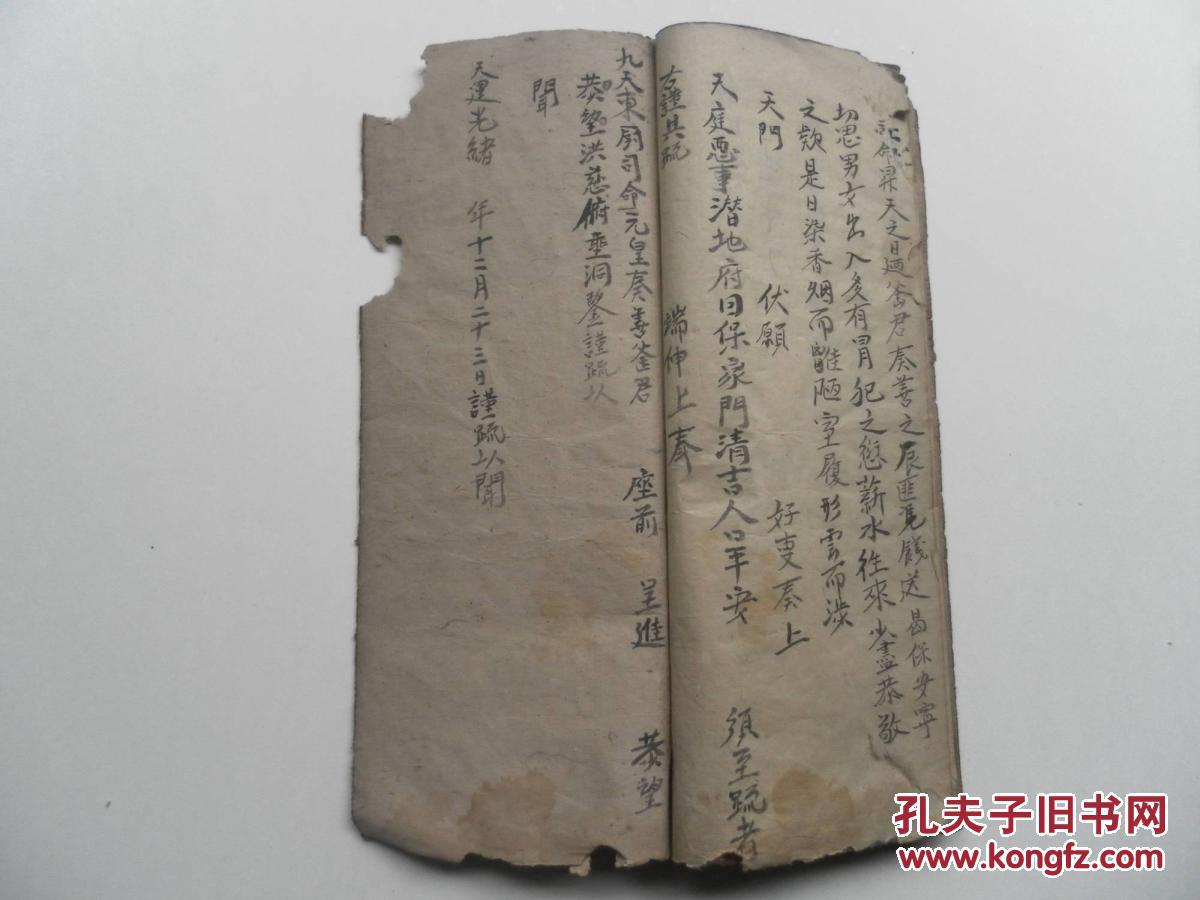 昇天之日廼釜君奏善之辰匪憑餞送曷保安寧
切思男女出入多有冒犯之愆薪水往來少盡恭敬
之款是日染香烟而離陋室履形雲而涉
天門 伏願 好事奏上
天庭惡事潜地府日保家門清吉人口平安 須至疏者
右謹具疏 端伸上奏
九天東厨司命元皇奏善釜君 座前 呈進 恭望
恭望洪慈俯垂洞鑒謹疏以
聞
天運光緒 年十二月二十三日謹疏以聞
孔夫子旧书网
www.kongfz.com